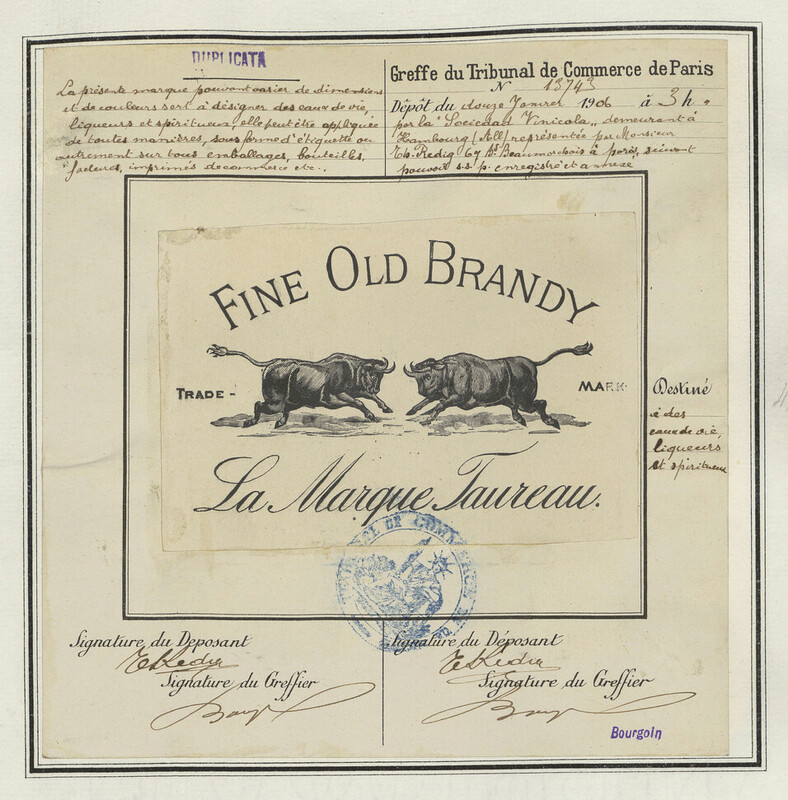 DUPLICATA
La présente marque pouvant varier de dimensions
et de couleurs sert à désigner des eaux de vie,
liqueurs et spiritueux, elle peut être appliquée
de toutes manières, sous forme d'étiquette ou
autrement sur tous emballages, bouteilles,
factures, imprimés de commerce etc..
Greffe du Tribunal de Commerce de Paris
N 13743
Dépôt du douze Janvier 1906 à 3 h.
par la "Sociedad Vinicola" demeurant à
Hambourg (All) représentée par Monsieur
67 Bd Beaumarchais à paris, suivant
pouvoir s.s.p. enregistré et annexé
FINE OLD BRANDY
TRADE - MARK
La Marque Taureau.
Destiné
à des
eaux de vie,
liqueurs
et spiritueux
TRIBUNAL DE COMMERCE
Signature du Déposant
Signature du Greffier
Signature du Déposant
Signature du Greffier
Bourgoin